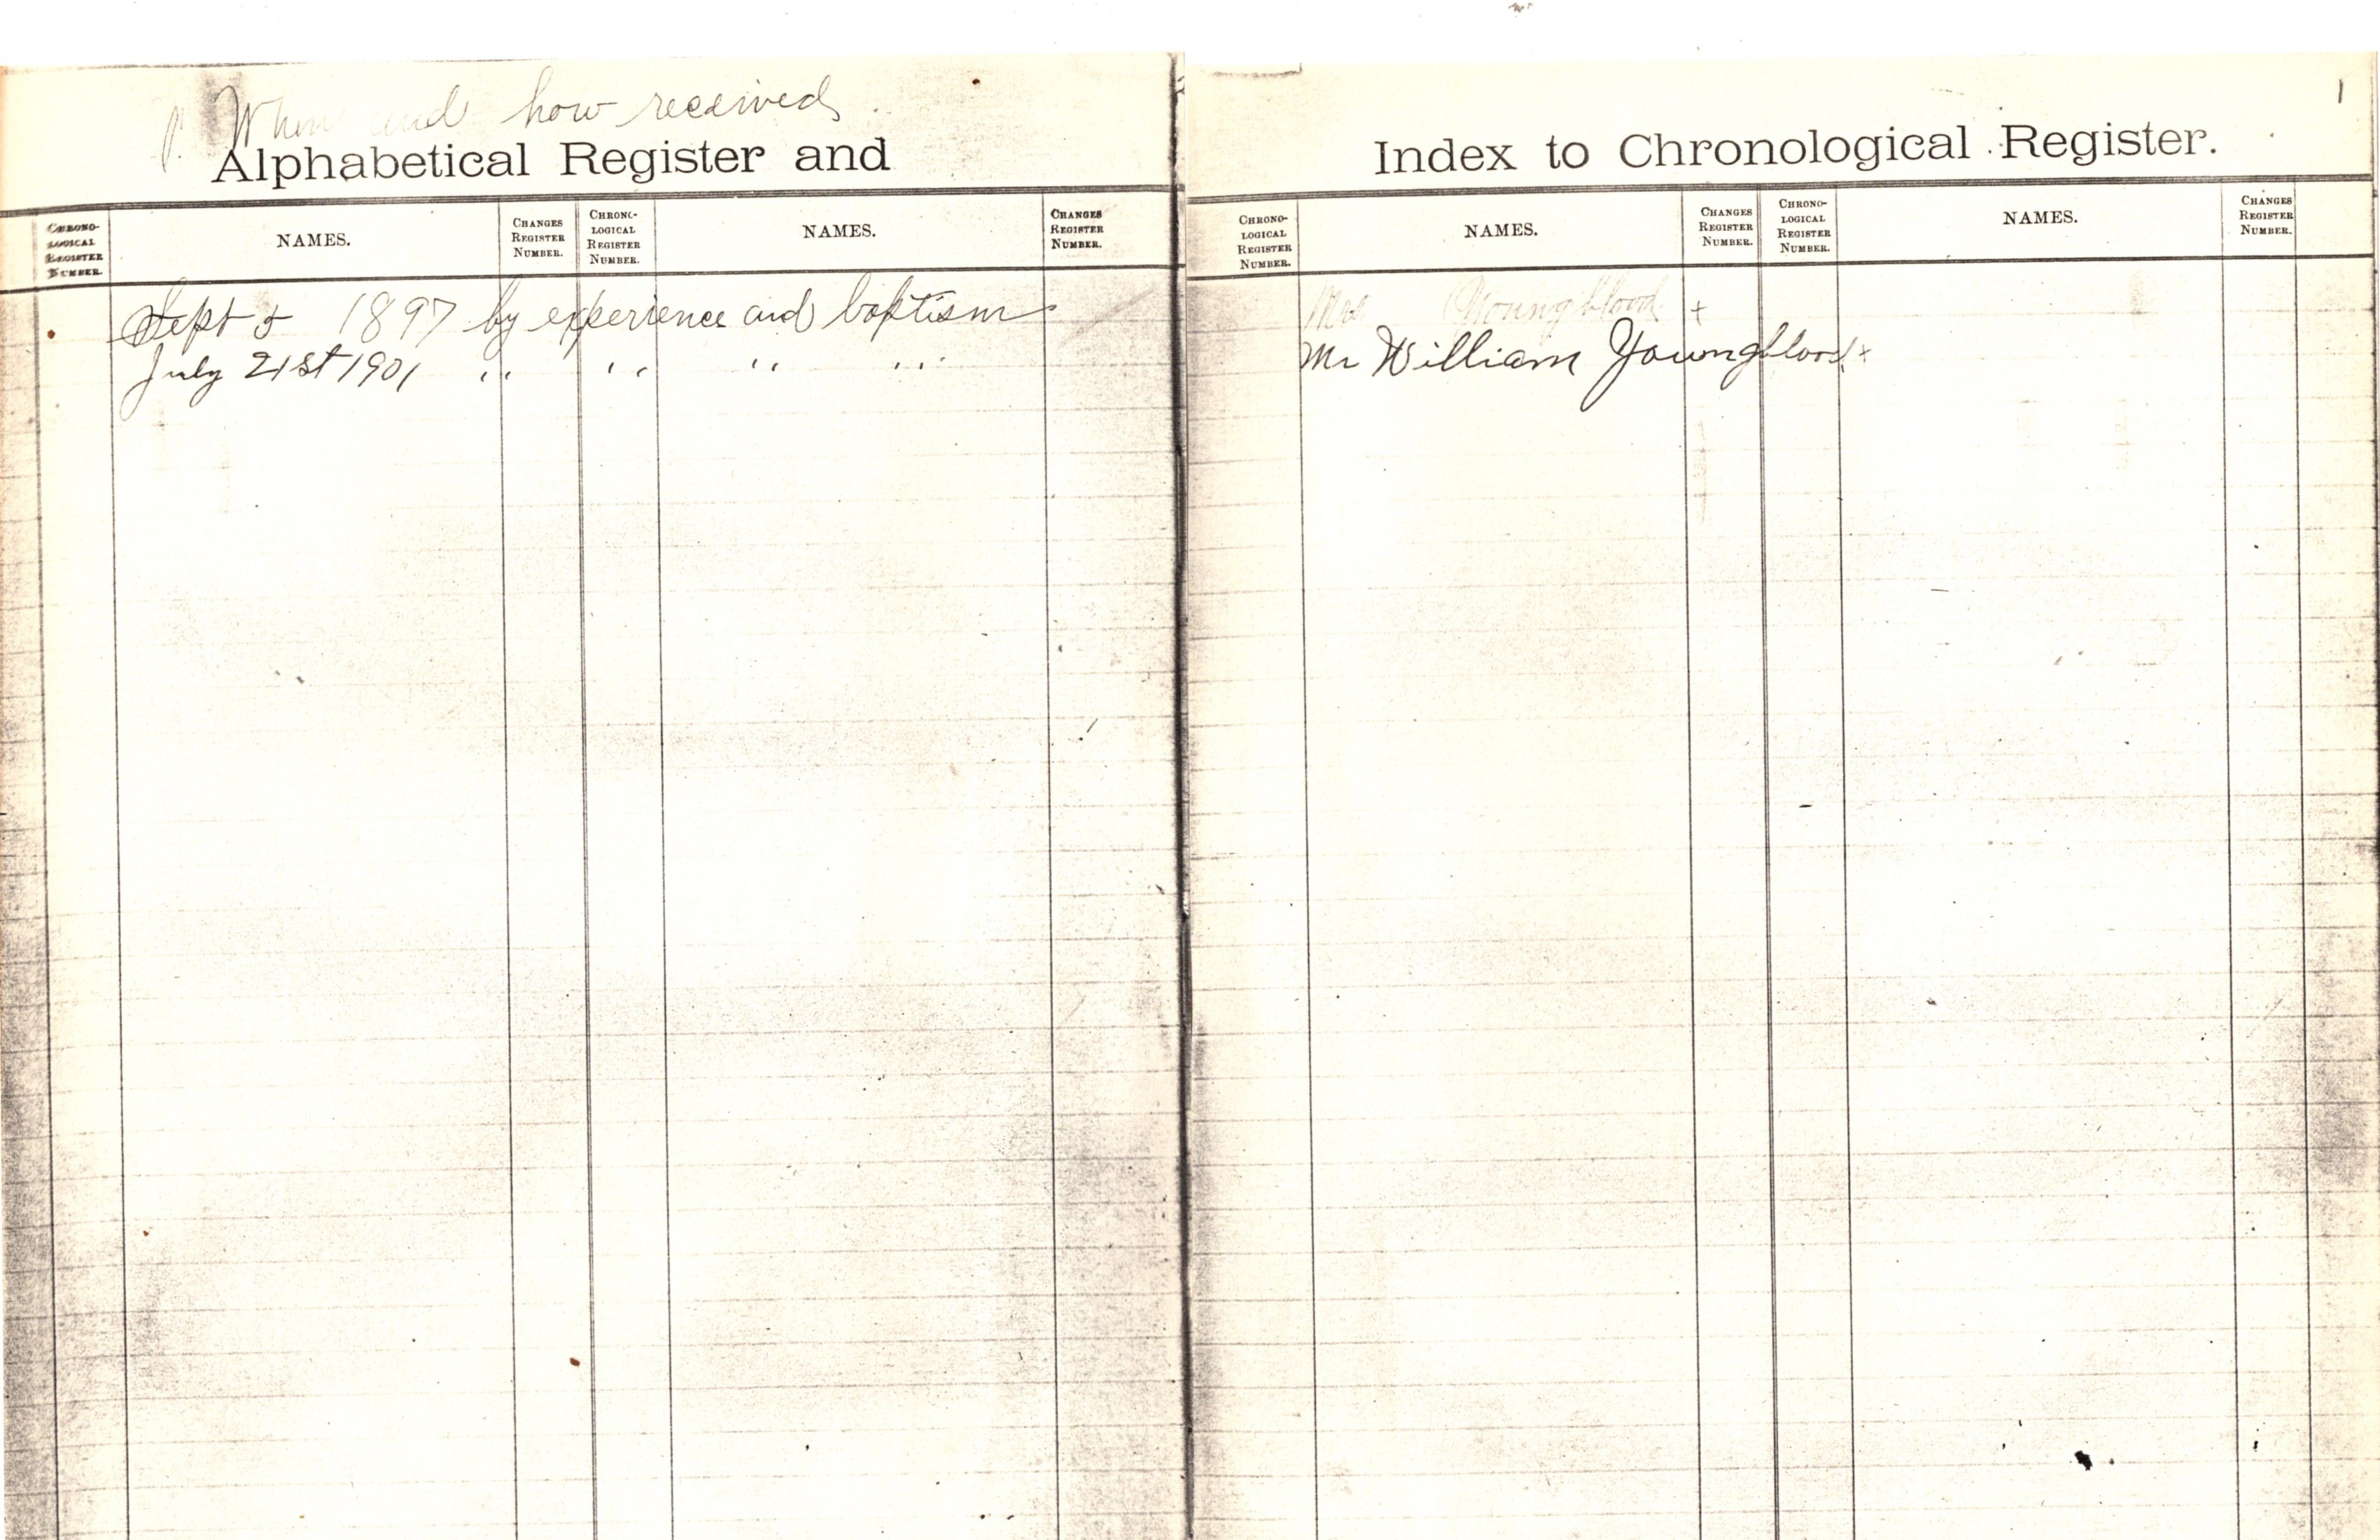 When and how received
Alphabetical Register and
CHRONO-
LOGICAL
REGISTER
NUMBER.
NAMES.
CHANGES
REGISTER
NUMBER.
CHRONO-
LOGICAL
REGISTER
NUMBER.
NAMES.
CHANGES
REGISTER
NUMBER.
Sept 5 1897 by experience and baptism
July 21st 1901 " " " "
1
Index to Chronological Register.
CHRONO-
LOGICAL
REGISTER
NUMBER.
NAMES.
CHANGES
REGISTER
NUMBER.
CHRONO-
LOGICAL
REGISTER
NUMBER.
NAMES.
CHANGES
REGISTER
NUMBER.
Mrs Youngblood +
Mr William Youngblood +